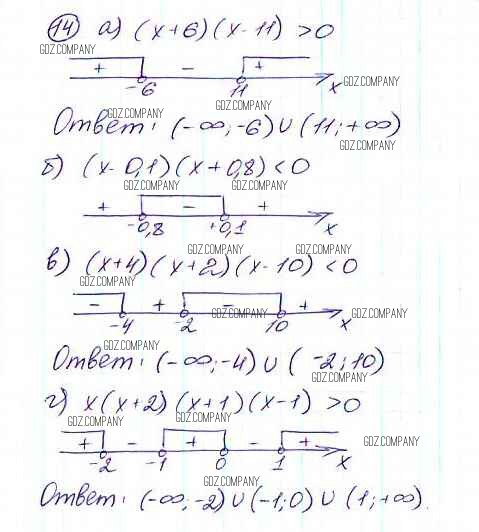 14 а) (x+6)(x-11) >0
GDZ.COMPANY
+ - +
GDZ.COMPANY
-6 11 x
GDZ.COMPANY
Ответ: (-∞;-6)∪(11;+∞)
GDZ.COMPANY
б) (x-0,1)(x+0,8)<0
GDZ.COMPANY GDZ.COMPANY
+ - +
-0,8 +0,1 x
GDZ.COMPANY GDZ.COMPANY
в) (x+4)(x+2)(x-10) <0
GDZ.COMPANY
- + - +
GDZ.COMPANY GDZ.COMPANY
-4 -2 10 x
GDZ.COMPANY
Ответ: (-∞;-4)∪(-2;10)
GDZ.COMPANY
г) x(x+2)(x+1)(x-1) >0
GDZ.COMPANY
+ - + - +
GDZ.COMPANY
-2 -1 0 1 x
GDZ.COMPANY
Ответ: (-∞;-2)∪(-1;0)∪(1;+∞).